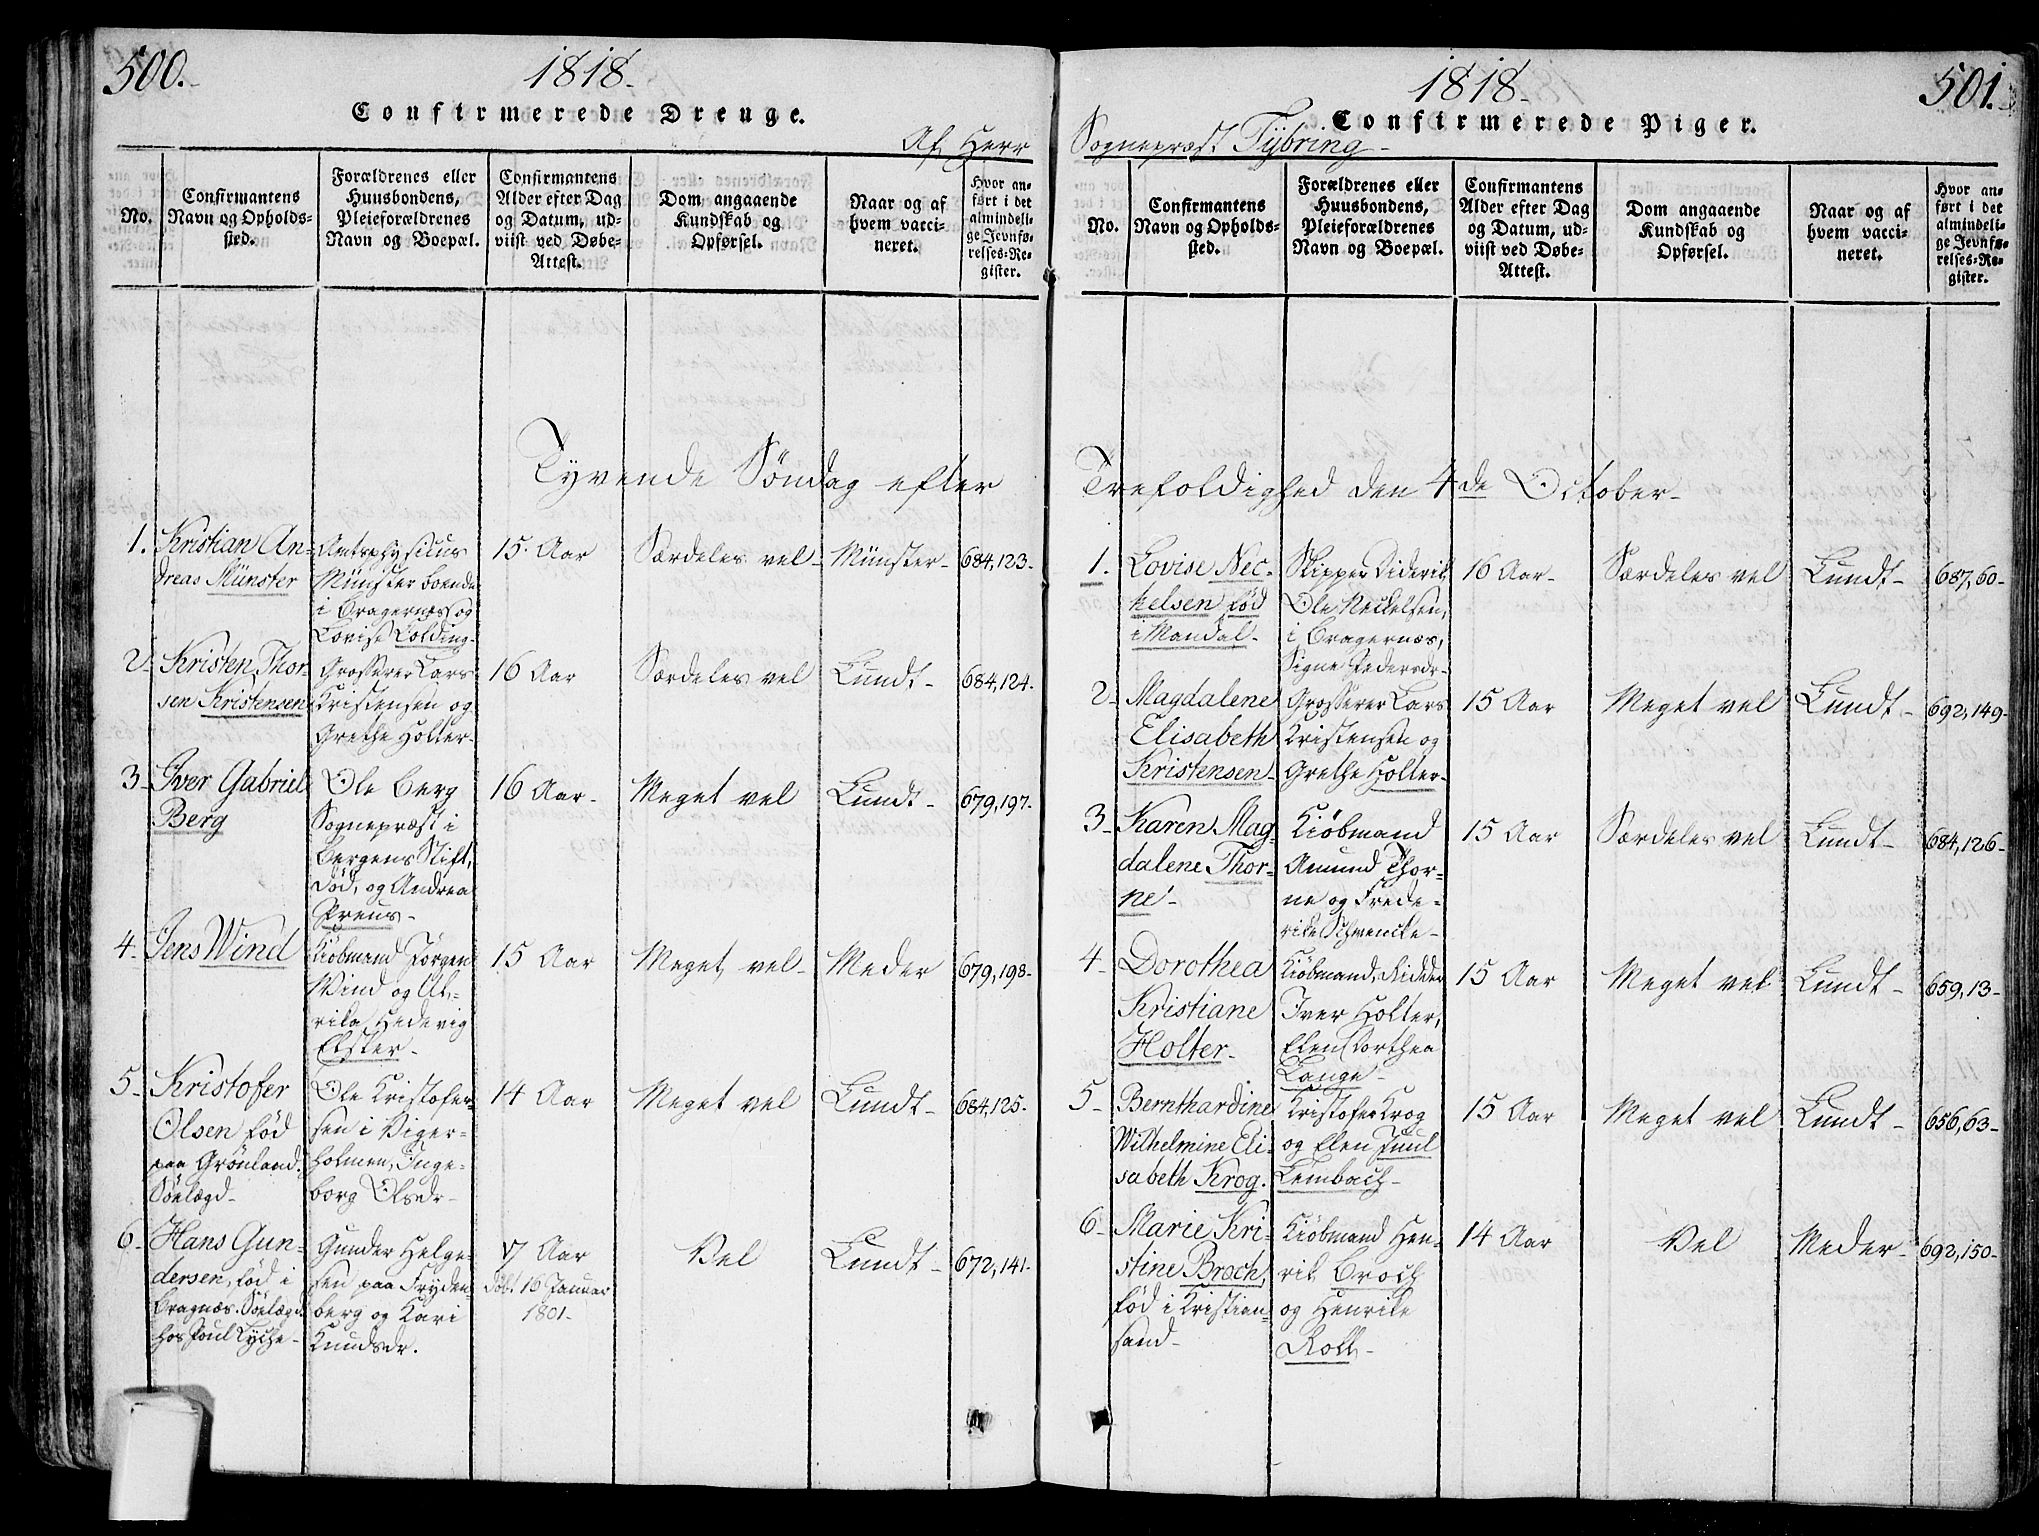 500.
1818.
Confirmerede Drenge.
Af Herr
No.
Confirmantens
Navn og Opholds-
sted.
Forældrenes eller
Huusbondens,
Pleieforældrenes
Navn og Boepæl.
Confirmantens
Alder efter Dag
og Datum, ud-
viist ved Døbe-
Attest.
Dom angaaende
Kundskab og
Opførsel.
Naar og af
hvem vacci-
neret.
Hvor an-
ført i det
almindeli-
ge Jevnfø-
relses-Re-
gister.
Tyvende Söndag efter
1.
Kristian An-
dreas Münster
Amtsphysicus
Münster boende
i Bragernæs og
Lovise Colding-
15. Aar
Særdeles vel-
Münster-
684,123-
2-
Kristen Thor-
sen Kristensen
Grosserer Lars
Kristensen og
Grethe Holter-
16 Aar
Særdeles vel
Lundt-
684,124-
3-
Iver Gabriel
Berg
Ole Berg
Sognepræst i
Bergens Stift,
död, og Andrea
Preus-
16 Aar-
Meget vel
Lundt-
679,197-
4-
Jens Wind
Kiöbmand Jörgen
Wind og Ul-
rika Hedevig
Elster-
15 Aar
Meget vel-
Meder
679,198-
5-
Kristofer
Olsen föd
paa Grönland.
Söelægd-
Ole Kristofer-
sen i Viger-
holmen, Inge-
borg Olsdr-
14 Aar
Meget vel
Lundt-
684,125-
6-
Hans Gun-
dersen, föd i
Bragnæs. Söelægd
hos Poul Lyche-
Gunder Helge-
sen paa Fryden-
berg og Kari
Knudsdr.
17 Aar
döbt 16 Januar
1801-
Vel
Lundt-
672,141-
1818-
501.
Confirmerede Piger.
Sognepræst Tybring-
No.
Confirmantens
Navn og Opholds-
sted.
Forældrenes eller
Huusbondens,
Pleieforældrenes
Navn og Boepæl.
Confirmantens
Alder efter Dag
og Datum, ud-
viist ved Døbe-
Attest.
Dom angaaende
Kundskab og
Opførsel.
Naar og af
hvem vacci-
neret.
Hvor an-
ført i det
almindeli-
ge Jevnfø-
relses-Re-
gister.
Trefoldighed den 4de October-
1.
Lovise Nec-
kelsen föd
i Mandal-
Skipper Diderik
Ole Neckelsen,
i Bragernæs,
Signe Pedersdr-
16 Aar-
Særdeles vel
Lundt-
687,60-
2-
Magdalene
Elisabeth
Kristensen-
Grosserer Lars
Kristensen og
Grethe Holter-
15 Aar
Meget vel
Lundt-
692,149-
3-
Karen Mag-
dalene Thor-
ne-
Kiöbmand
Amund Thor-
ne og Frede-
rike Schwencke-
15 Aar
Særdeles vel
Lundt-
684,126-
4-
Dorothea
Kristiane
Holter-
Kiöbmand, Ridder
Iver Holter,
Elen Dorthea
Lange-
15 Aar
Meget vel
Lundt-
659,13-
5-
Bernthardine
Wilhelmine Eli-
sabeth Krog.
Kristofer Krog
og Elen Juul
Lembach-
15 Aar
Meget vel
Lundt-
656,63-
6-
Marie Kri-
stine Broch,
föd i Kristian-
sand-
Kiöbmand Hen-
rik Broch
og Henrike
Roll-
14 Aar
Vel
Meder-
692,150-